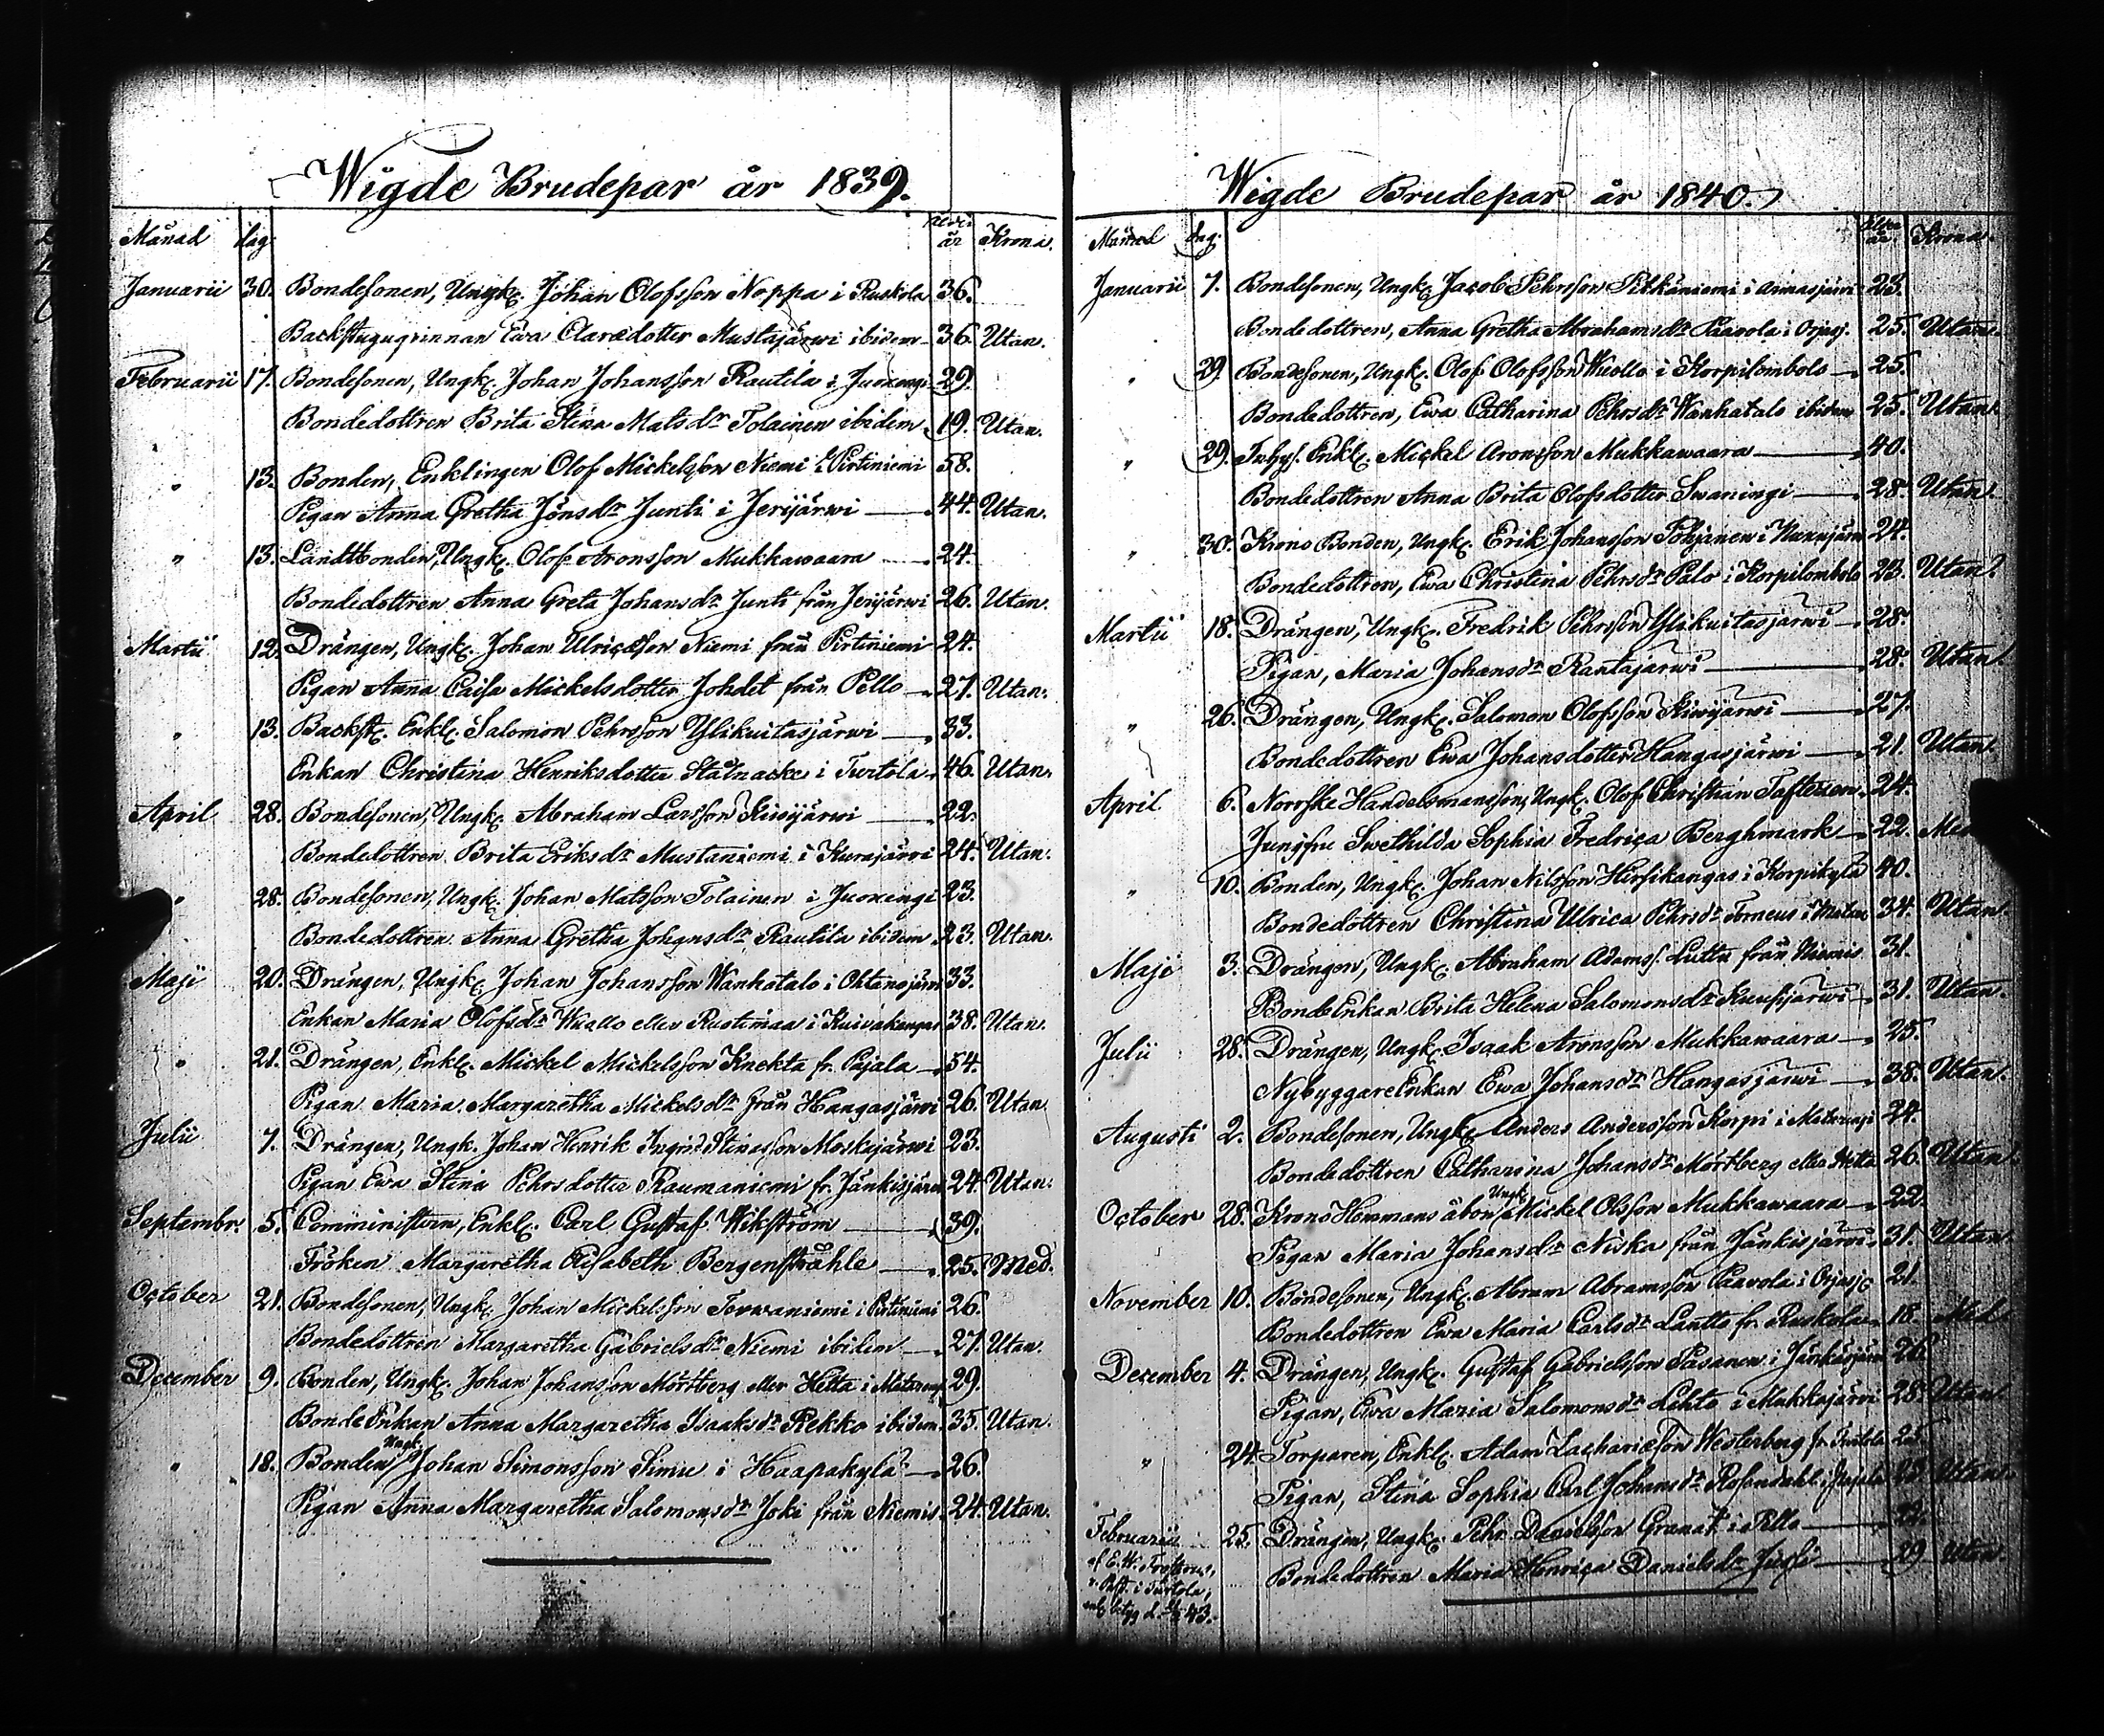 Wigde Brudepar år 1839.
Månad dag. Ålder år Krona.
Januarii 30. Bondesonen, Ungk. Johan Olofsson Noppa i Ruskola 36.
Backstuguqvinnan Ewa Clarædotter Mustajärwi ibidem 36. Utan.
Februarii 17. Bondesonen, Ungk. Johan Johansson Rautila i Juoxengi 29.
Bondedottren Brita Stina Matsdr Tolainen ibidem 19. Utan.
" 13. Bonden, Enklingen Olof Mickelsson Niemi i Pirtiniemi 58.
Pigan Anna Gretha Jönsdr Junti i Jerijärwi 44. Utan.
" 13. Landtbonden, Ungk. Olof Aronsson Mukkawaara 24.
Bondedottren Anna Greta Johansdr Junti från Jerijärwi 26. Utan.
Martii 12. Drängen, Ungk. Johan Ulricæson Niemi från Pirtiniemi 24.
Pigan Anna Caisa Mickelsdotter Johdet från Pello 27. Utan.
" 13. Backst. Enkl. Salomon Pehrsson Ylikuitasjärwi 33.
Enkan Christina Henriksdotter Stålnacke i Turtola 46. Utan.
April 28. Bondesonen, Ungk. Abraham Larsson Kiwijärwi 22.
Bondedottren Brita Eriksdr Mustaniemi i Kurajärwi 24. Utan.
" 28. Bondesonen, Ungk. Johan Matsson Tolainen i Juoxengi 23.
Bondedottren Anna Gretha Johansdr Rautila ibidem 23. Utan.
Maji 20. Drängen, Ungk. Johan Johansson Wanhatalo i Ohtanajärwi 33.
Enkan Maria Olofsdr Wuollo eller Rustimaa i Kuivakangas 38. Utan.
" 21. Drängen, Enkl. Mickel Mickelsson Knekta fr. Pajala 54.
Pigan Maria Margaretha Mickelsdr från Hangasjärwi 26. Utan.
Julii 7. Drängen, Ungk. Johan Henrik Ingrid Stinasson Moskajärwi 23.
Pigan Ewa Stina Pehrsdotter Raumaniemi fr. Jänkisjärwi 24. Utan.
Septembr. 5. Comministern, Enkl. Carl Gustaf Wikström 39.
Fröken Margaretha Elisabeth Bergenstråhle 25. Med.
October 21. Bondesonen, Ungk. Johan Mickelsson Terwaniemi i Pirtiniemi 26.
Bondedottren Margaretha Gabrielsdr Niemi ibidem 27. Utan.
December 9. Bonden, Ungk. Johan Johansson Mörtberg eller Hetta i Matarengi 29.
BondeEnkan Anna Margaretha Isaaksdr Rekko ibidem 35. Utan.
" 18. Bonden, Ungk. Johan Simonsson Simu i Haapakylä 26.
Pigan Anna Margaretha Salomonsdr Joki från Niemis 24. Utan.
Wigde Brudepar år 1840.
Månad dag. Ålder år. Krona.
Januarii 7. Bondesonen, Ungk. Jacob Pehrsson Pitkäniemi i Armasjärwi 23.
Bondedottren, Anna Gretha Abrahamsdr Paavola i 25. Utan.
" 29. Bondesonen, Ungk. Olof Olofsson Wuollo i Korpilombolo 25.
Bondedottren, Ewa Catharina Pehrsdr Wanhatalo ibidem 25. Utan.
" 29. Inhys. Enkl. Mickel Aronsson Mukkawaara 40.
Bondedottren Anna Brita Olofsdotter Swaningi 28. Utan.
" 30. Krono Bonden, Ungk. Erik Johansson Pohjanen i 24.
Bondedottren, Ewa Christina Pehrsdr Palo i Korpilombolo 23. Utan.
Martii 18. Drängen, Ungk. Fredrik Pehrsson Ylikuitasjärwi 28.
Pigan, Maria Johansdr Rantajärwi 28. Utan.
" 26. Drängen, Ungk. Salomon Olofsson Kiwijärwi 27.
Bondedottren Ewa Johansdotter Hangasjärwi 21. Utan.
April 6. Norrske Handelsmansson, Ungk. Olof Christian 24.
Jungfru Swethilda Sophia Fredrica Berghmark 22. Med
" 10. Bonden, Ungk. Johan Nilsson Hirsikangas i Korpikylä 40.
Bondedottren Christina Ulrica Pehrsdr Torneus i 34. Utan.
Maji 3. Drängen, Ungk. Abraham Adams. Luttu från Niemis 31.
BondeEnkan Brita Helena Salomonsdr Kuusijärwi 31. Utan.
Julii 28. Drängen, Ungk. Isaak Aronsson Mukkawaara 25.
NybyggareEnkan Ewa Johansdr Hangasjärwi 38. Utan.
Augusti 2. Bondesonen, Ungk. Anders Andersson Korpi i Matarengi 24.
Bondedottren Catharina Johansdr Mörtberg eller Hetta 26. Utan.
October 28. Krono Hemmans åbon Ungk. Mickel Olsson Mukkawaara 22.
Pigan Maria Johansdr Niska från Jänkisjärwi 31. Utan.
November 10. Bondesonen, Ungk. Abram Abramsson Paavola i 21.
Bondedottren Ewa Maria Carlsdr Lantto fr. Ruskola 18. Med
December 4. Drängen, Ungk. Gustaf Gabrielsson Pasanen i Jänkisjärwi 26.
Pigan, Ewa Maria Salomonsdr Lehto i Mukkajärwi 28. Utan
" 24. Torparen, Enkl. Adam Zachariæson Westerberg fr. Turtola
Pigan, Stina Sophia Carl Johansdr Rosendahl i Utan.
Februarii 25. Drängen, Ungk. Pehr Danielsson Granat i Pello
Bondedottren Maria Henrica Danielsdr 29 Utan